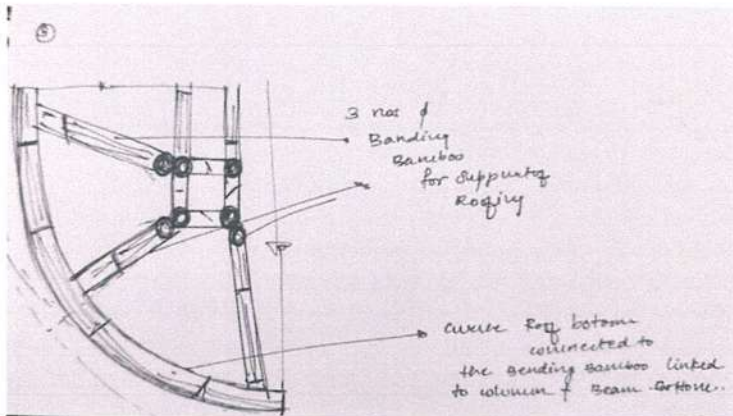 3
3 nos of
Banding
Bamboo
for Supporting
Roofing
Curve Roof bottom
connected to
the Bending Bamboo linked
to column & Beam Bottom..